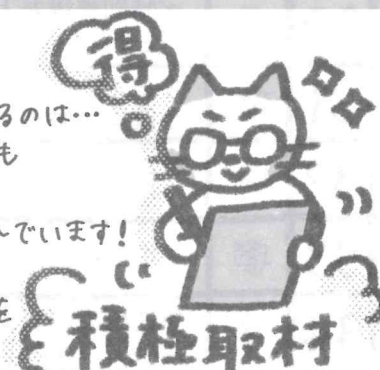 得
るのは…
も
でいます!
を
積極取材